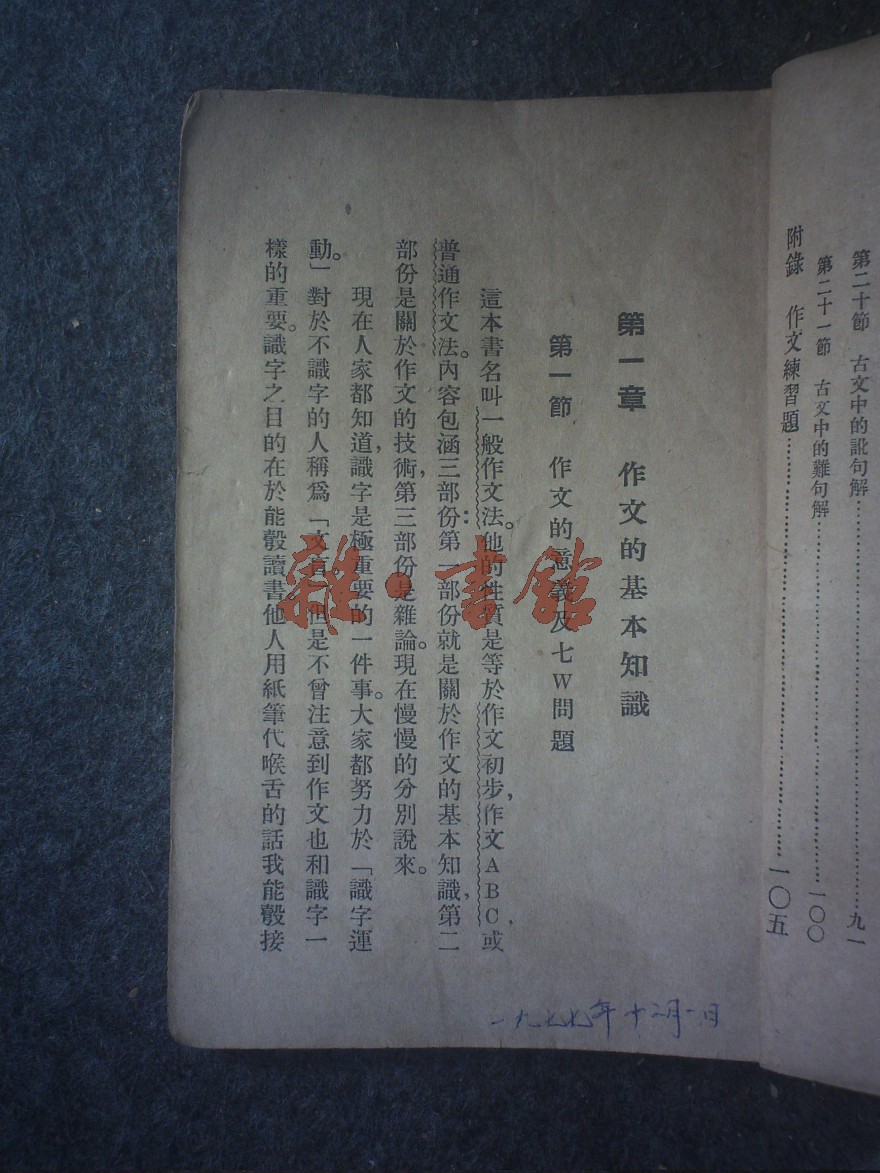 第二十節　古文中的訛句解……………九一
第二十一節　古文中的難句解……………一〇〇
附錄　作文練習題……………一〇五
第一章　作文的基本知識
第一節　作文的意義及七W問題
這本書名叫一般作文法。他的性質是等於作文初步，作文ABC，或
普通作文法。內容包涵三部份：第一部份就是關於作文的基本知識，第二
部份是關於作文的技術，第三部份是雜論。現在慢慢的分別說來。
現在人家都知道，識字是極重要的一件事。大家都努力於「識字運
動。」對於不識字的人稱爲「文盲。」但是不曾注意到作文也和識字一
樣的重要。識字之目的在於能彀讀書。他人用紙筆代喉舌的話我能彀接
一九七七年十二月一日
雜·書館